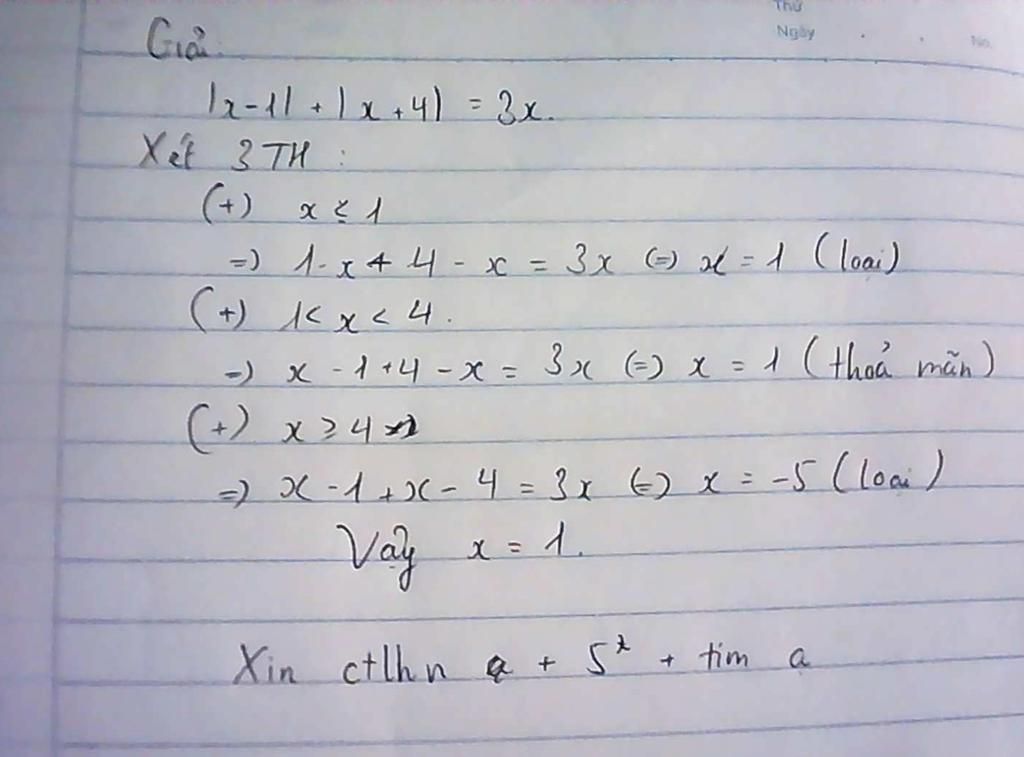 Thứ
Ngày . . No.
Giải:
|x-1| + |x+4| = 3x.
Xét 3 TH :
(+) x ≤ 1
=) 1-x+4-x = 3x (=) x = 1 (loại)
(+) 1< x < 4.
=) x - 1 + 4 - x = 3x (=) x = 1 (thoả mãn)
(+) x ≥ 4
=) x - 1 + x - 4 = 3x (=) x = -5 (loại)
Vậy x = 1.
Xin ctlhn ạ + 5* + tim ạ